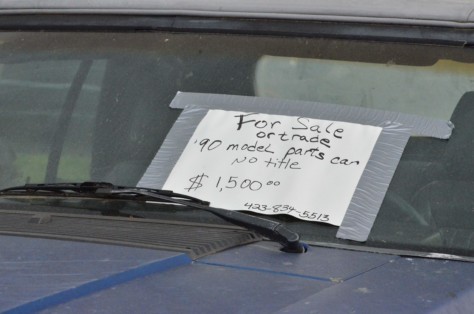 For Sale
or trade
'90 model parts car
No title
$ 1,500.00
423-834-5513